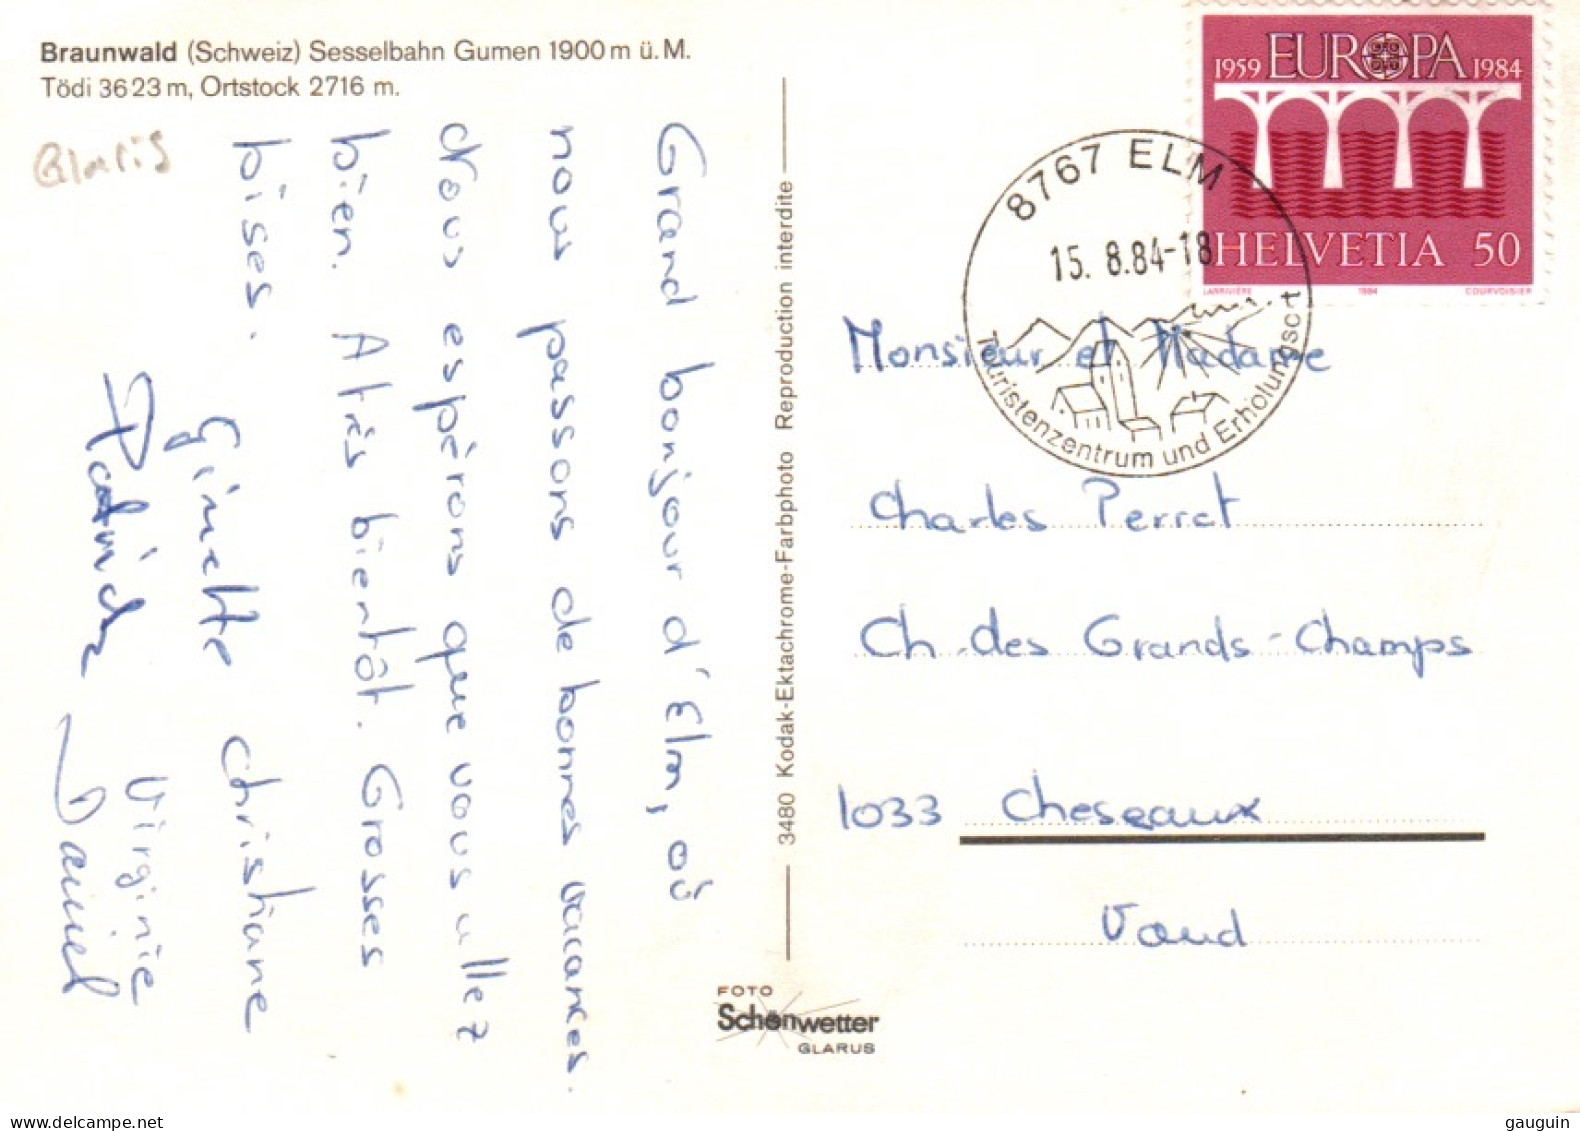 Braunwald (Schweiz) Sesselbahn Gumen 1900 m ü. M.
Tödi 3623 m, Ortstock 2716 m.
Glaris
Grand bonjour d'Elm, où
nous passons de bonnes vacances.
Nous espérons que vous allez
bien. A très bientôt. Grosses
bises.
Ginette Christiane
Virginie
Daniel
3480 Kodak-Ektachrome-Farbphoto Reproduction interdite
FOTO
Schönwetter
GLARUS
1959 EUROPA 1984
HELVETIA 50
LARRIVIÈRE 1984 COURVOISIER
8767 ELM
15. 8.84-18
Touristenzentrum und Erholungsort
Monsieur et Madame
Charles Perret
Ch. des Grands-Champs
1033 Cheseaux
Vaud
gauguin